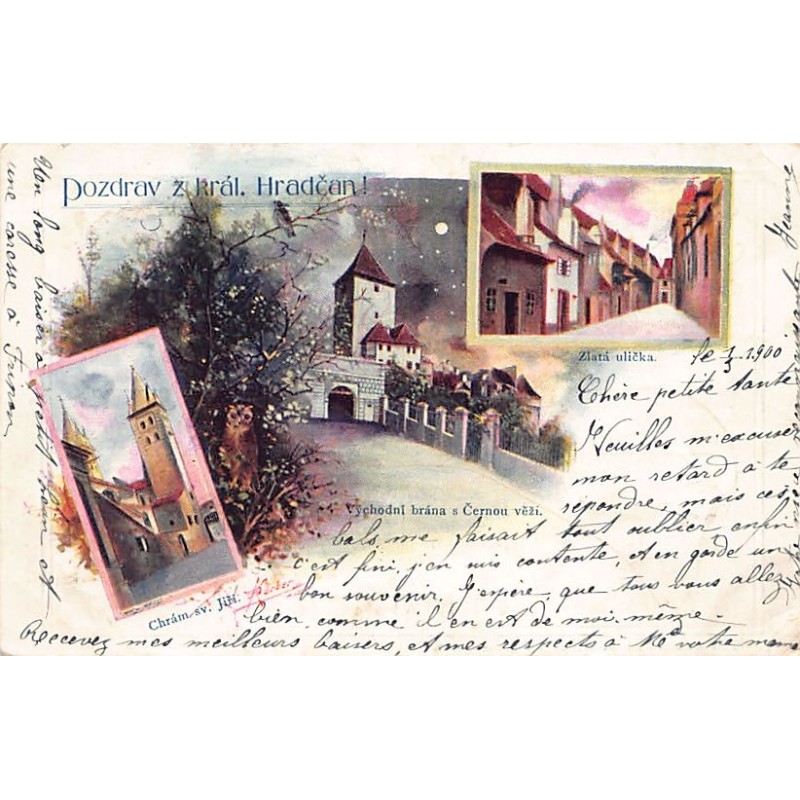 Pozdrav z král. Hradčan!
Zlatá ulička.
Východní brána s Černou věží.
Chrám sv. Jiří.
le 1900
Chère petite tante
Veuilles m'excuser
mon retard à te
répondre, mais ces
bals me faisait tout oublier enfin
c'est fini, j'en suis contente, et en garde un
bon souvenir. J'espère, que tous vous allez
bien, comme il en est de moi-même.
Recevez mes meilleurs baisers, et mes respects à Me votre
Jeanne
Un long baiser a petit et
une caresse à